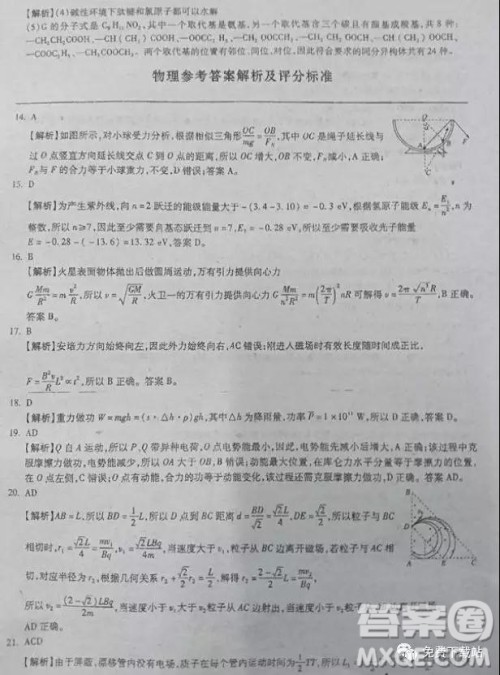 【解析】(4)碱性环境下肽键和氯原子都可以水解
(5)G 的分子式是 C₉H₁₁NO₂,其中一个取代基是氨基,另一个取代基含三个碳且有酯基或羧基,共 8 种:
—CH₂CH₂COOH、—CH(CH₃)COOH、
两个取代基的位置有邻位、间位、对位,因此符合要求的同分异构体共有 24 种。
物理参考答案解析及评分标准
14. A
【解析】如图所示,对小球受力分析,根据相似三角形 OC/mg = OB/F_N,其中 OC 是绳子延长线与
过 O 点竖直方向延长线交点 C 到 O 点的距离,所以 OC 增大,OB 不变,F_N减小,A 正确;
F_N与 F 的合力等于小球重力,不变,D 错误;答案 A。
15. D
【解析】为产生紫外线,向 n=2 跃迁的能级能量大于 -(3.4-3.10)=-0.3 eV,根据氢原子能级 E_n=E₁/n²,n 为
整数,所以 n≥7,因此至少需要自基态跃迁到 n=7,E₇=-0.28 eV,所以至少需要吸收光子能量
E=-0.28-(-13.6)=13.32 eV,答案 D。
16. B
【解析】火星表面物体抛出后做圆周运动,万有引力提供向心力
G Mm/R² = m v²/R,所以 v=√(GM/R),火卫一的万有引力提供向心力 G Mm/n²R² = m(2π/T)² nR 可解得 v=2π√n³R/T,B正确。
答案 B。
17. B
【解析】安培力方向始终向左,因此外力始终向右,AC 错误;刚进入磁场时有效长度随时间成正比,
F=B²v/R L²∝t²,所以 B 正确。答案 B。
18. D
【解析】重力做功 W=mgh=(s·Δh·ρ)gh,其中Δh 为降雨量,功率 P=1×10¹¹ W,所以 D 正确。答案 D。
19. AD
【解析】Q 自 A 运动,所以 P、Q 带异种电荷,O 点电势能最小,因此,电势能先减小后增大,A 正确;该过程中克
服摩擦力做功,电势能减小,所以 OA 大于 OB,B 错误;动能最大的位置,在库仑力水平分量等于摩擦力的位置,
在 O 点左侧,C 错误;O 点有动能,合力的功等于动能变化量,该过程还需克服摩擦力做功,D 正确。答案 AD。
20. AD
【解析】AB=L,所以 BD=1/2 L,所以 D 点到 BC 距离 d=BD/√2=√2L/4,DE=√2/2,所以粒子与 BC
相切时,r₁=√2L/4=mv₁/Bq,v₁=√2LBq/4m,当速度大于 v₁粒子从 BC 边离开磁场,若粒子与 AC 相
切,对应半径为 r₂,根据几何关系 r₂+√2/2 r₂=L/2,解得 r₂=(2-√2)L/2=mv₂/Bq
所以 v₂=(2-√2)LBq/2m,当速度小于 v₁大于 v₂粒子从 AC 边射出,当速度小于
AD 正确。
21. ACD
【解析】由于屏蔽,漂移管内没有电场,质子在每个管内运动时间为1/2 T,所以 L₁
答案圈
MXQE.COM
免费下载站